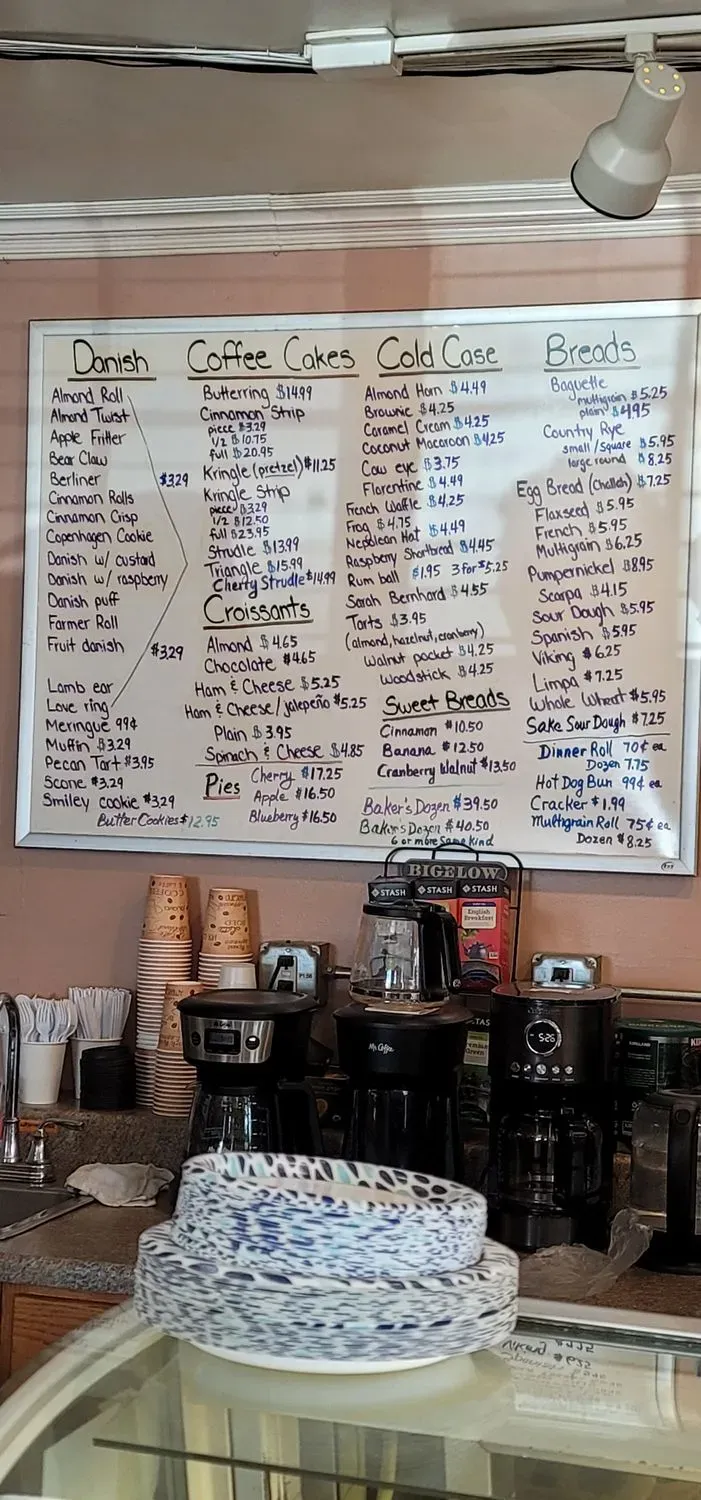 Danish
Almond Roll
Almond Twist
Apple Fritter
Bear Claw
Berliner $3.29
Cinnamon Rolls
Cinnamon Crisp
Copenhagen Cookie
Danish w/ custard
Danish w/ raspberry
Danish puff
Farmer Roll
Fruit danish $3.29
Lamb ear
Love ring
Meringue 99¢
Muffin $3.29
Pecan Tart $3.95
Scone $3.29
Smiley cookie $3.29
Butter Cookies $12.95
Coffee Cakes
Butterring $14.99
Cinnamon Strip
piece $3.29
1/2 $10.75
full $20.95
Kringle (pretzel) $11.25
Kringle Strip
piece $3.29
1/2 $12.50
full $23.95
Strudle $13.99
Triangle $15.99
Cherry Strudle $14.99
Croissants
Almond $4.65
Chocolate $4.65
Ham & Cheese $5.25
Ham & Cheese/jalepeño $5.25
Plain $3.95
Spinach & Cheese $4.85
Pies
Cherry $17.25
Apple $16.50
Blueberry $16.50
Cold Case
Almond Horn $4.49
Brownie $4.25
Caramel Cream $4.25
Coconut Macaroon $4.25
Cow eye $3.75
Florentine $4.49
French Waffle $4.25
Frog $4.75
Nepolean Hat $4.49
Raspberry Shortbread $4.45
Rum ball $1.95 3 for $5.25
Sarah Bernhard $4.55
Tarts $3.95
(almond, hazelnut, cranberry)
Walnut pocket $4.25
Woodstick $4.25
Sweet Breads
Cinnamon $10.50
Banana $12.50
Cranberry Walnut $13.50
Baker's Dozen $39.50
Baker's Dozen $40.50
6 or more Same kind
Breads
Baguette
multigrain $5.25
plain $4.95
Country Rye
small/square $5.95
large round $8.25
Egg Bread (Challah) $7.25
Flaxseed $5.95
French $5.95
Multigrain $6.25
Pumpernickel $8.95
Scarpa $4.15
Sour Dough $5.95
Spanish $5.95
Viking $6.25
Limpa $7.25
Whole Wheat $5.95
Sake Sour Dough $7.25
Dinner Roll 70¢ ea
Dozen 7.75
Hot Dog Bun 99¢ ea
Cracker $1.99
Multigrain Roll 75¢ ea
Dozen $8.25
BIGELOW
STASH
STASH
STASH
English
Breakfast
Mr. Coffee
5:26
KIRKLAND